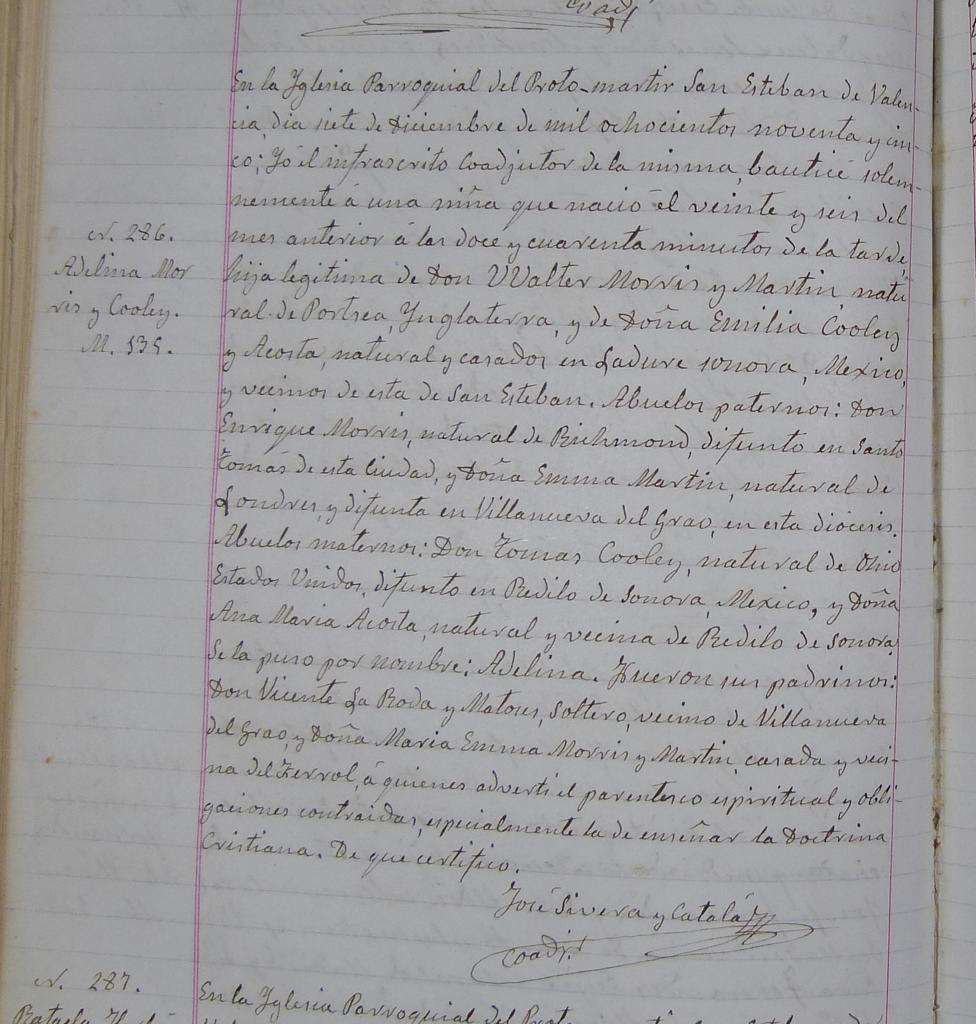 Coadj
En la Yglesia Parroquial del Proto-martir San Esteban de Valen-
cia, dia siete de Diciembre de mil ochocientos noventa y cin-
co; Yó el infrascrito Coadjutor de la misma, bauticé solem-
nemente á una niña que nació él veinte y seis del
mes anterior á las doce y cuarenta minutos de la tarde,
hija legitima de Don VValter Morris y Martin, natu
ral de Portsea, Ynglaterra, y de Doña Emilia Cooley
y Acosta, natural y casados en Ladure sonora, Mexico,
y vecinos de esta de San Esteban. Abuelos paternos: Don
Enrique Morris, natural de Richmond, difunto en Santo
Tomás de esta Ciudad, y Doña Emma Martin, natural de
Londres, y difunta en Villanueva del Grao, en esta diócesis.
Abuelos maternos: Don Tomas Cooley, natural de Ohio
Estados Unidos, difunto en Redilo de Sonora, Mexico, y Doña
Ana Maria Acosta, natural y vecina de Redilo de sonora.
Se la puso por nombre: Adelina. Fueron sus padrinos:
Don Vicente La Roda y Matoses, Soltero, vecino de Villanueva
del Grao, y Doña Maria Emma Morris y Martin, casada y veci-
na del Ferrol, á quienes adverti el parentesco espiritual y obli-
gaciones contraidas, especialmente la de enseñar la Doctrina
Cristiana. De que certifico.
José Sivera y Catalá
Coadjr.
N. 286.
Adelina Mor
ris y Cooley.
M. 535.
N. 287.
Rafaela
En la Yglesia Parroquial del Proto